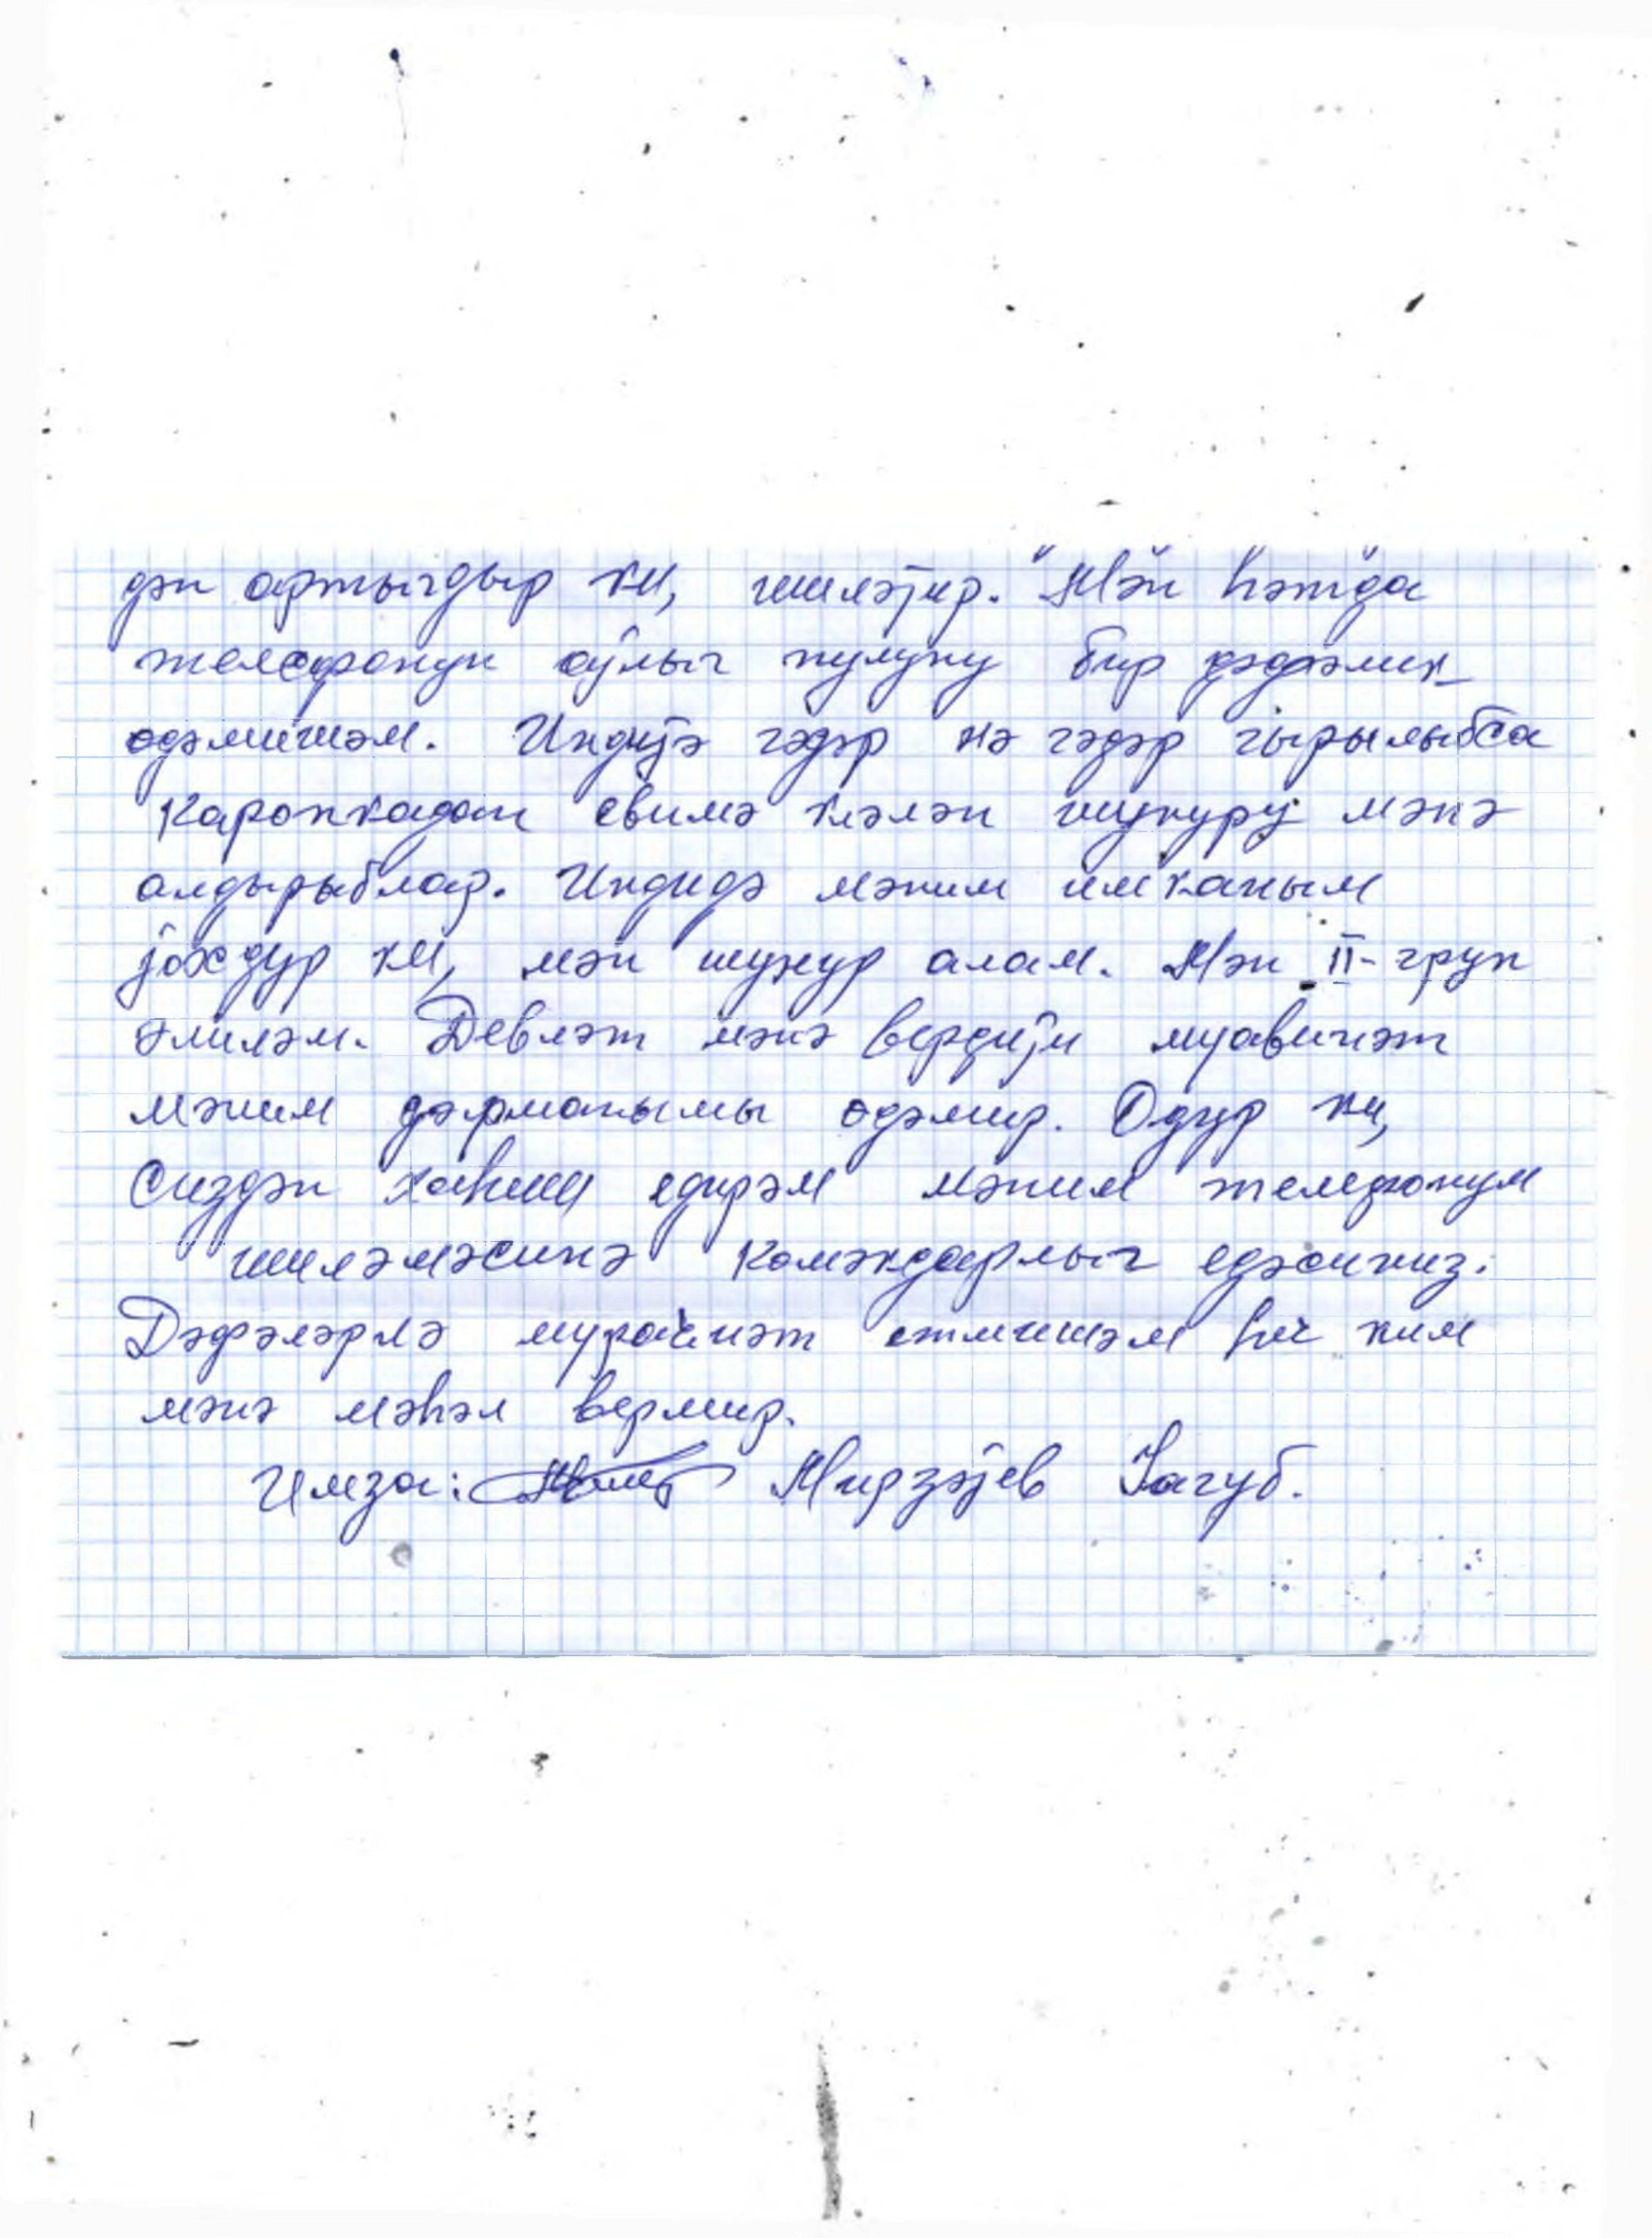 дән артыгдыр ки, ишләјир. Мән һәтда
телефонун ајлыг пулуну бир дәфәлик
өдәмишәм. Индијә гәдәр нә гәдәр гырылыбса
Каропкадан евимә кәлән шунуру мәнә
алдырыблар. Индидә мәним имканым
јохдур ки, мән шунур алам. Мән II-груп
әлиләм. Девләт мәнә вердији муавинәт
мәним дәрманымы өдәмир. Одур ки,
Сиздән хаһиш едирәм мәним телефонум
ишләмәсинә көмәкдарлыг едәсиниз.
Дәфәләрлә мурачиәт етмишәм һеч ким
мәнә мәһәл вермир.
Имза: Мирзәјев Јагуб.